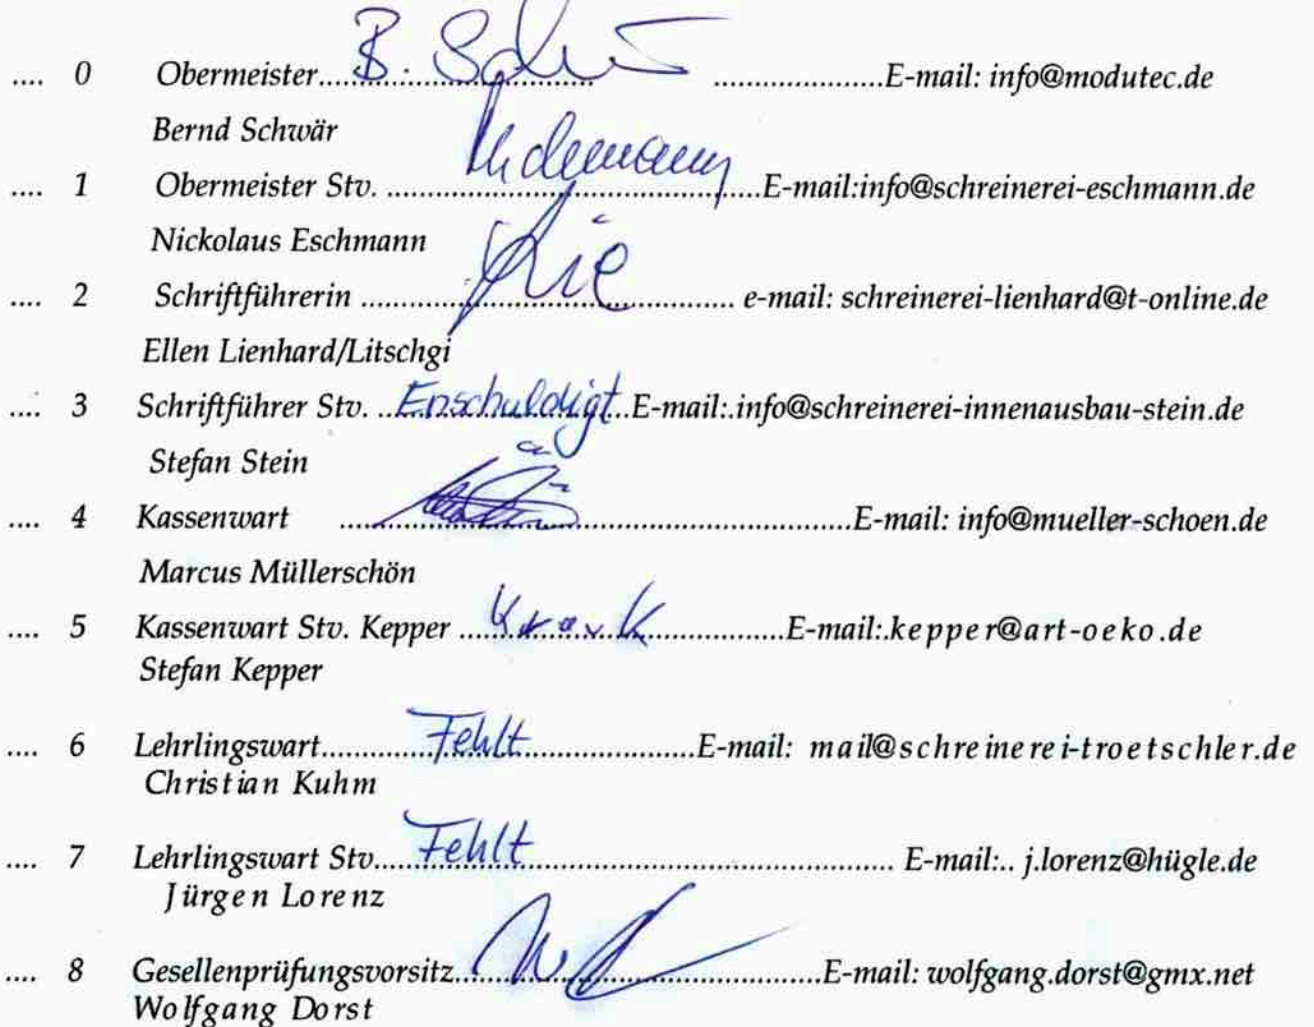 .... 0 Obermeister....B. Sch.................... ....................E-mail: info@modutec.de
Bernd Schwär
.... 1 Obermeister Stv. ............................................E-mail:info@schreinerei-eschmann.de
Nickolaus Eschmann
.... 2 Schriftführerin ............................................ e-mail: schreinerei-lienhard@t-online.de
Ellen Lienhard/Litschgi
.... 3 Schriftführer Stv. ..Enschuldigt..E-mail:.info@schreinerei-innenausbau-stein.de
Stefan Stein
.... 4 Kassenwart ............................................E-mail: info@mueller-schoen.de
Marcus Müllerschön
.... 5 Kassenwart Stv. Kepper ....Krank................E-mail:.kepper@art-oeko.de
Stefan Kepper
.... 6 Lehrlingswart.............Fehlt....................E-mail: mail@schreinerei-troetschler.de
Christian Kuhm
.... 7 Lehrlingswart Stv.....Fehlt............................................ E-mail:.. j.lorenz@hügle.de
Jürgen Lorenz
.... 8 Gesellenprüfungsvorsitz............................................E-mail: wolfgang.dorst@gmx.net
Wolfgang Dorst